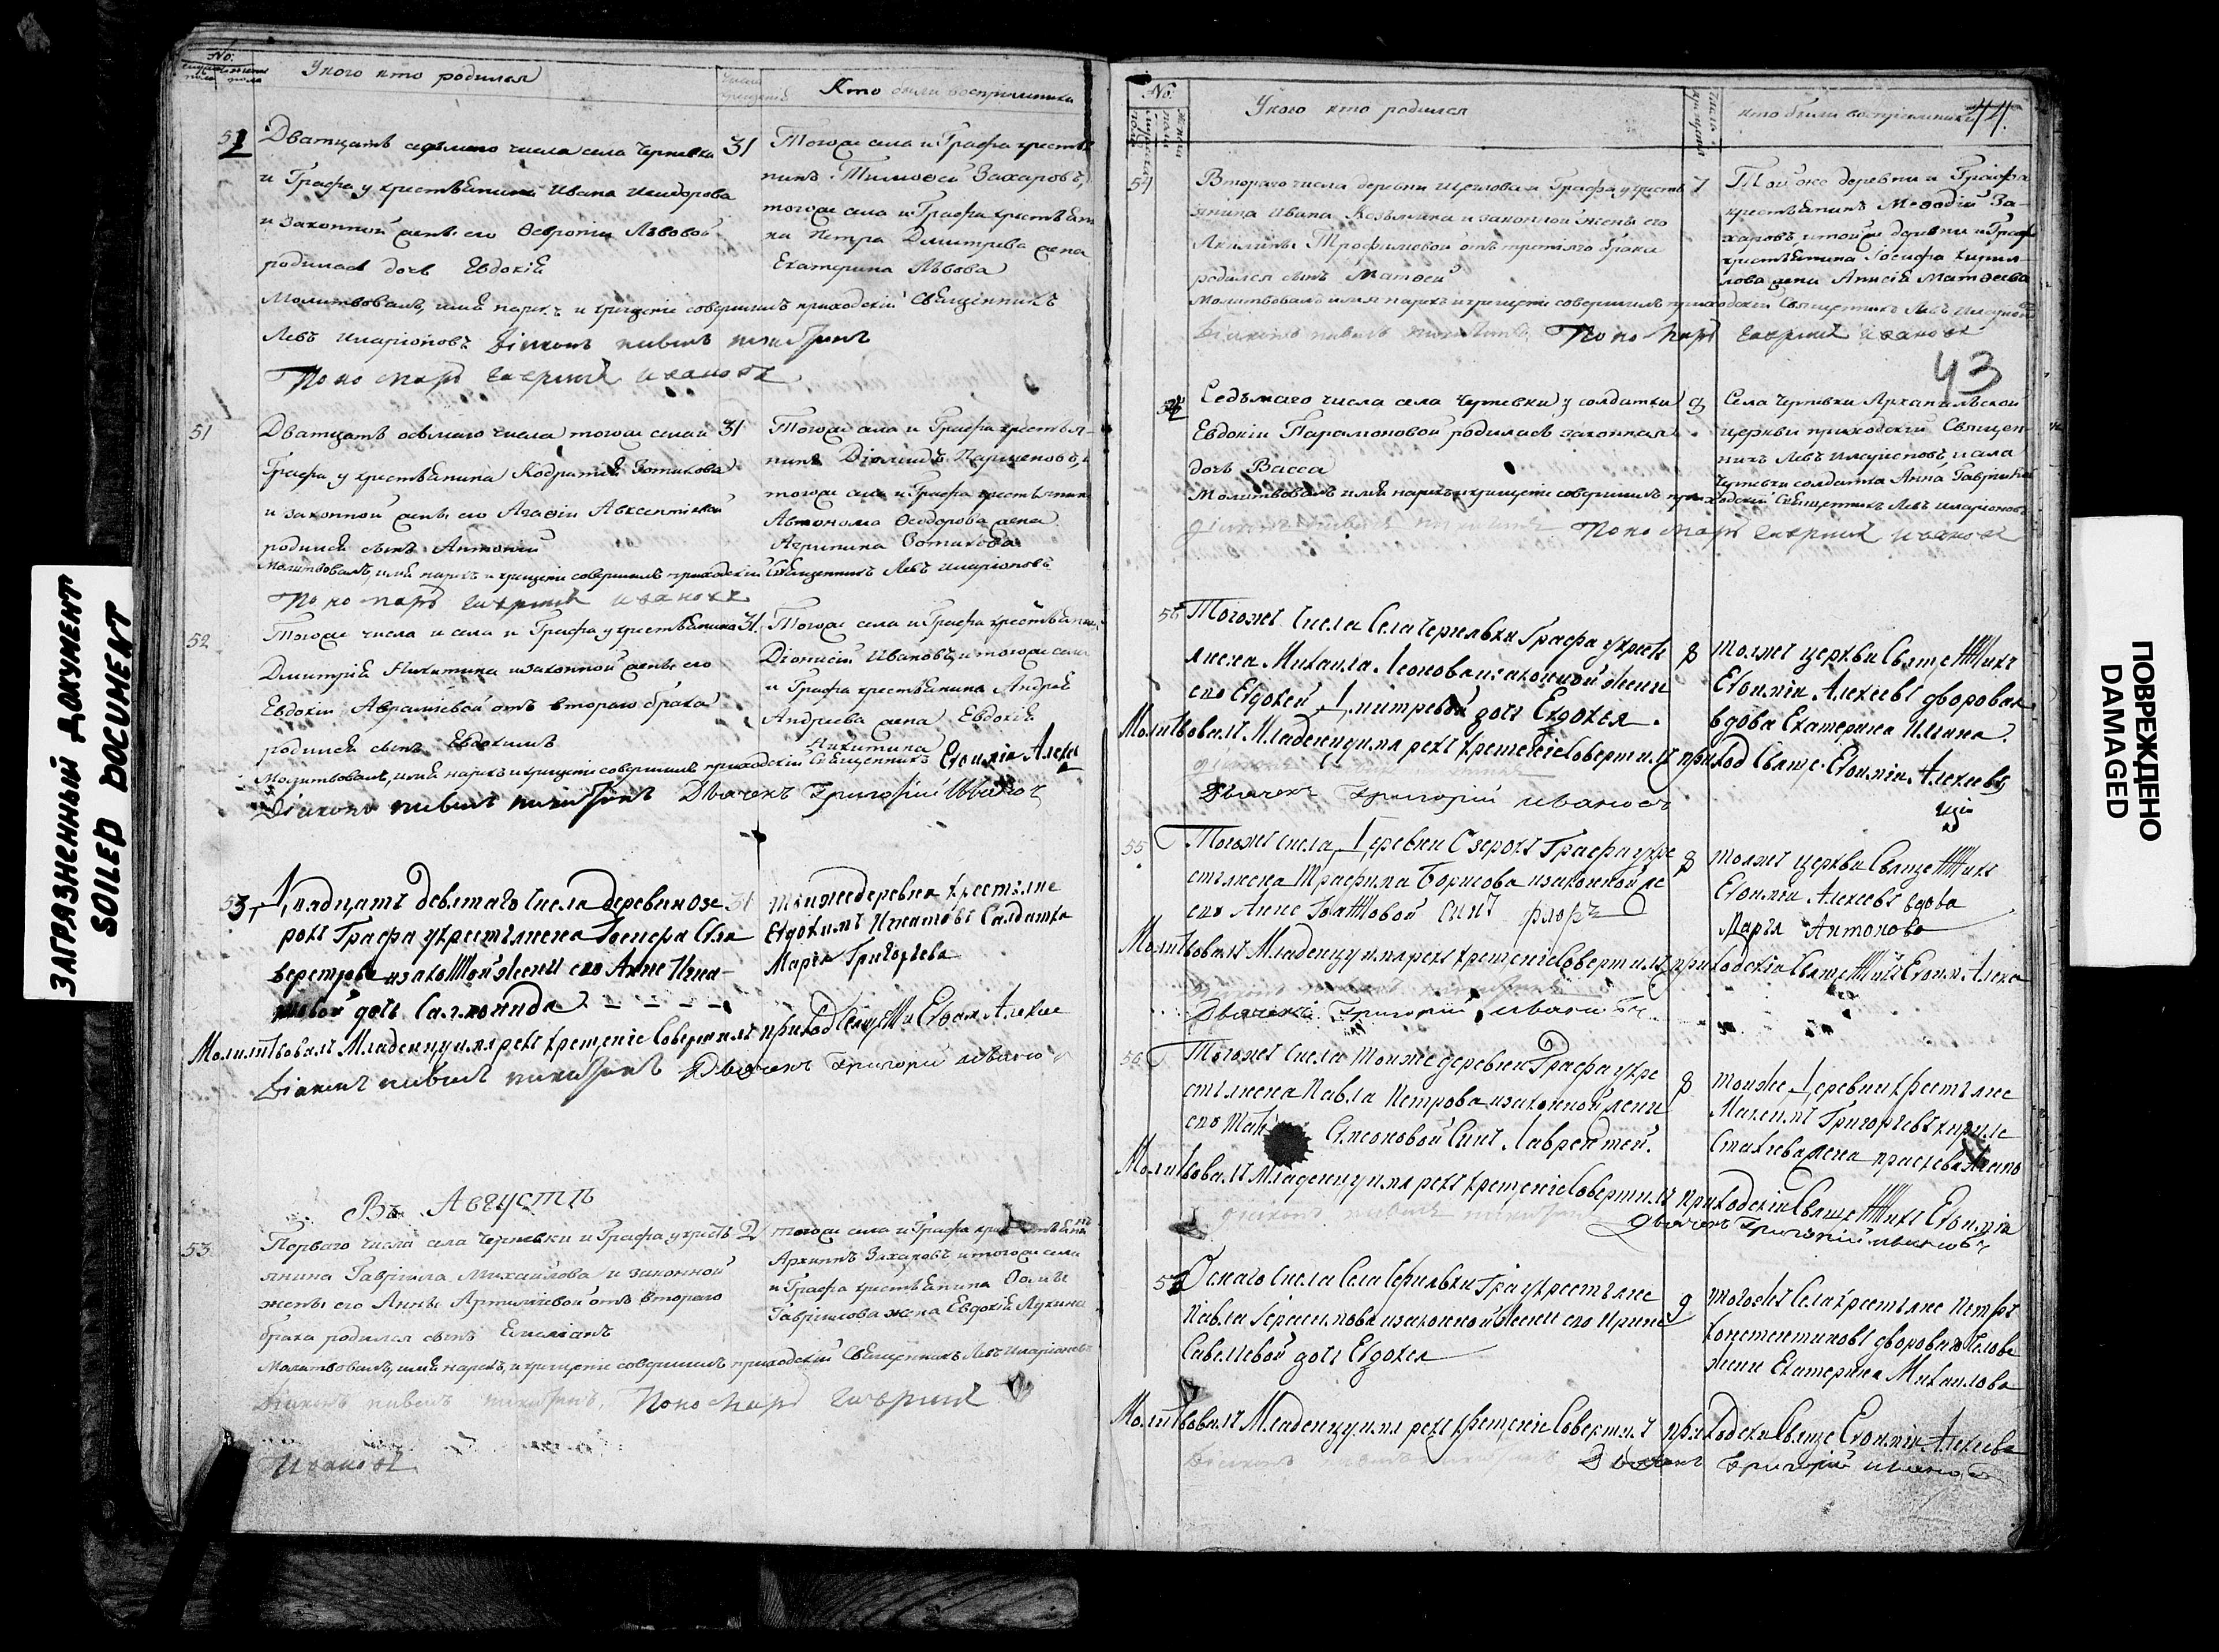 ЗАГРЯЗНЕННЫЙ ДОКУМЕНТ
SOILED DOCUMENT
No.
У кого кто родился
Кто были восприемники
52
Дватцать седьмаго числа села Черневки
и Графа у крестьянина Ивана Исидорова
и законной жены его Февронiи Львовой
родилась дочь Евдокiя
31
Тогоже села и Графа кресть
нинъ Тимофей Захаровъ,
тогоже села и Графа крестьяни
на Петра Дмитрiева жена
Екатерина Львова
Молитвовалъ, имя нарекъ и крещенiе совершилъ приходскiй Священникъ
Левъ Иларiоновъ Дiаконъ
Пономарь Гаврiилъ Ивановъ
51
Дватцать осьмаго числа тогоже села и
Графа у крестьянина Кодратiя Зотикова
и законной жены его Агафiи Авксентiевой
родился сынъ Антонiй
31
Тогоже села и Графа крестья-
нинъ Дiомидъ Парменовъ, и
тогоже села и Графа крестьянина
Автонома Феодорова жена
Агрипина Зотикова
Молитвовалъ, имя нарекъ и крещенiе совершилъ приходскiй Священникъ Левъ Иларiоновъ
Пономарь Гаврiилъ Ивановъ
52
Тогоже числа и села и Графа у крестьянина
Дмитрiя Никитина и законной жены его
Евдокiи Авраамiевой отъ втораго брака
родился сынъ Евдокимъ
31.
Тогоже села и Графа крестьянинъ
Дiонисiй Ивановъ, и тогоже села
и Графа крестьянина Андрея
Андреева жена Евдокiя
Никитина
Молитвовалъ, имя нарекъ и крещенiе совершилъ приходскiй Священникъ Евфимiй Алекѣ
Дiаконъ Дьячекъ Григорiй Ивановъ
53
Двадцать девятаго числа деревни Озе
рокъ Графа у крестьянена Iосифа Селя
верстрова и законной жены его Анне Игна-
товой дочь Саломонида
31
тойже деревни крестьяне
Евдокимъ Игнатовъ Салдатка
Марья Григорьева
Молитвовалъ Младенцу имя рекъ крещенiе совершилъ приход Священни Евфим Алекѣе
Дiаконъ Дьячекъ Григорiй Ивановъ
Въ Августѣ
53
Перваго числа села Черневки и Графа у кресть
янина Гаврiила Михайлова и законной
жены его Анны Артемiевой отъ втораго
брака родился сынъ Емелiанъ
2
тогоже села и Графа крестьянинъ
Архипъ Захаровъ и тогоже села
и Графа крестьянина Фомы
Гаврiилова жена Евдокiя Лукина
Молитвовалъ, имя нарекъ, и крещенiе совершилъ приходскiй Священникъ Левъ Иларiоновъ
Дiаконъ Пономарь Гаврiилъ
Ивановъ
No.
У кого кто родился
кто были восприемники
44.
54
Втораго числа деревни Щеглова и Графа у кресть
янина Ивана Козьмина и законной жены его
Акилины Трофимовой отъ третьяго брака
родился сынъ Матфей
7
Той же деревни и Графа
крестьянинъ Мефодiй За-
харовъ и тойже деревни и Граф
крестьянина Iосифа Кирил-
лова жена Анисiя Матфеева
Молитвовалъ имя нарекъ и крещенiе совершилъ приходскiй Священникъ Левъ Иларiоновъ
Дiаконъ Пономарь Гаврiилъ Ивановъ
43
54
Седьмаго числа села Черневки у солдатки
Евдокiи Парамоновой родилась законная
дочь Васса
8
Села Черневки Архангельской
церкви приходскiй Священ-
никъ Левъ Иларiоновъ и села
Черневки солдатка Анна Гаврiилова
Молитвовалъ имя нарекъ и крещенiе совершилъ приходскiй Священникъ Левъ Иларiоновъ
Пономарь Гаврiилъ Ивановъ
Тогожъ числа села Чернѣвки Графа у кресть
янена Михаила Леонова и законной жены
его Евдокеи Дмитревой дочь Евдокея.
8
тояжъ церкви Священникъ
Евфимiй Алексѣевъ дворовая
вдова Екатерина Ильина.
Молитвовалъ Младенцу имя рекъ крещенiе совершилъ приход Свяще. Евфимiй Алексѣевъ
Дьячекъ Григорiй Ивановъ
55
Тогожъ числа Деревни Озерокъ Графа у кре
стьянена Трафима Борисова и законной же
его Анне сынъ Флоръ
8
тояжъ церкви Священникъ
Евфимiй Алексѣевъ вдова
Дарья Антонова
Молитвовалъ Младенцу имя рекъ крещенiе совершилъ приходскiй Священникъ Евфим Алекѣ
Дьячекъ Григорiй Ивановъ
56
Тогожъ числа тойже деревни Графа у кре
стьянена Павла Петрова и законной жены
его Семеновой сынъ Лаврентей.
8
тойже Деревни крестьяне
Махсимъ Григорьевъ
жена
Молитвовалъ Младенцу имя рекъ крещенiе совершилъ приходскiй Священникъ Евфимiй
Дьячекъ Григорiй Ивановъ
57
Осмаго числа села Чернѣвки Гра у крестьяне
Павла Герасимова и законной жены его Ирине
Савельевой дочь Евдокея
9
тогожъ села крестьяне Петръ
Констентиновъ дворовыхъ
жены Екатерина Михаилова
Молитвовалъ Младенцу имя рекъ крещенiе совершилъ приходски Свяще Евфимiй Алексѣевъ
Дьячекъ Григорiй Ивановъ
ПОВРЕЖДЕНО
DAMAGED